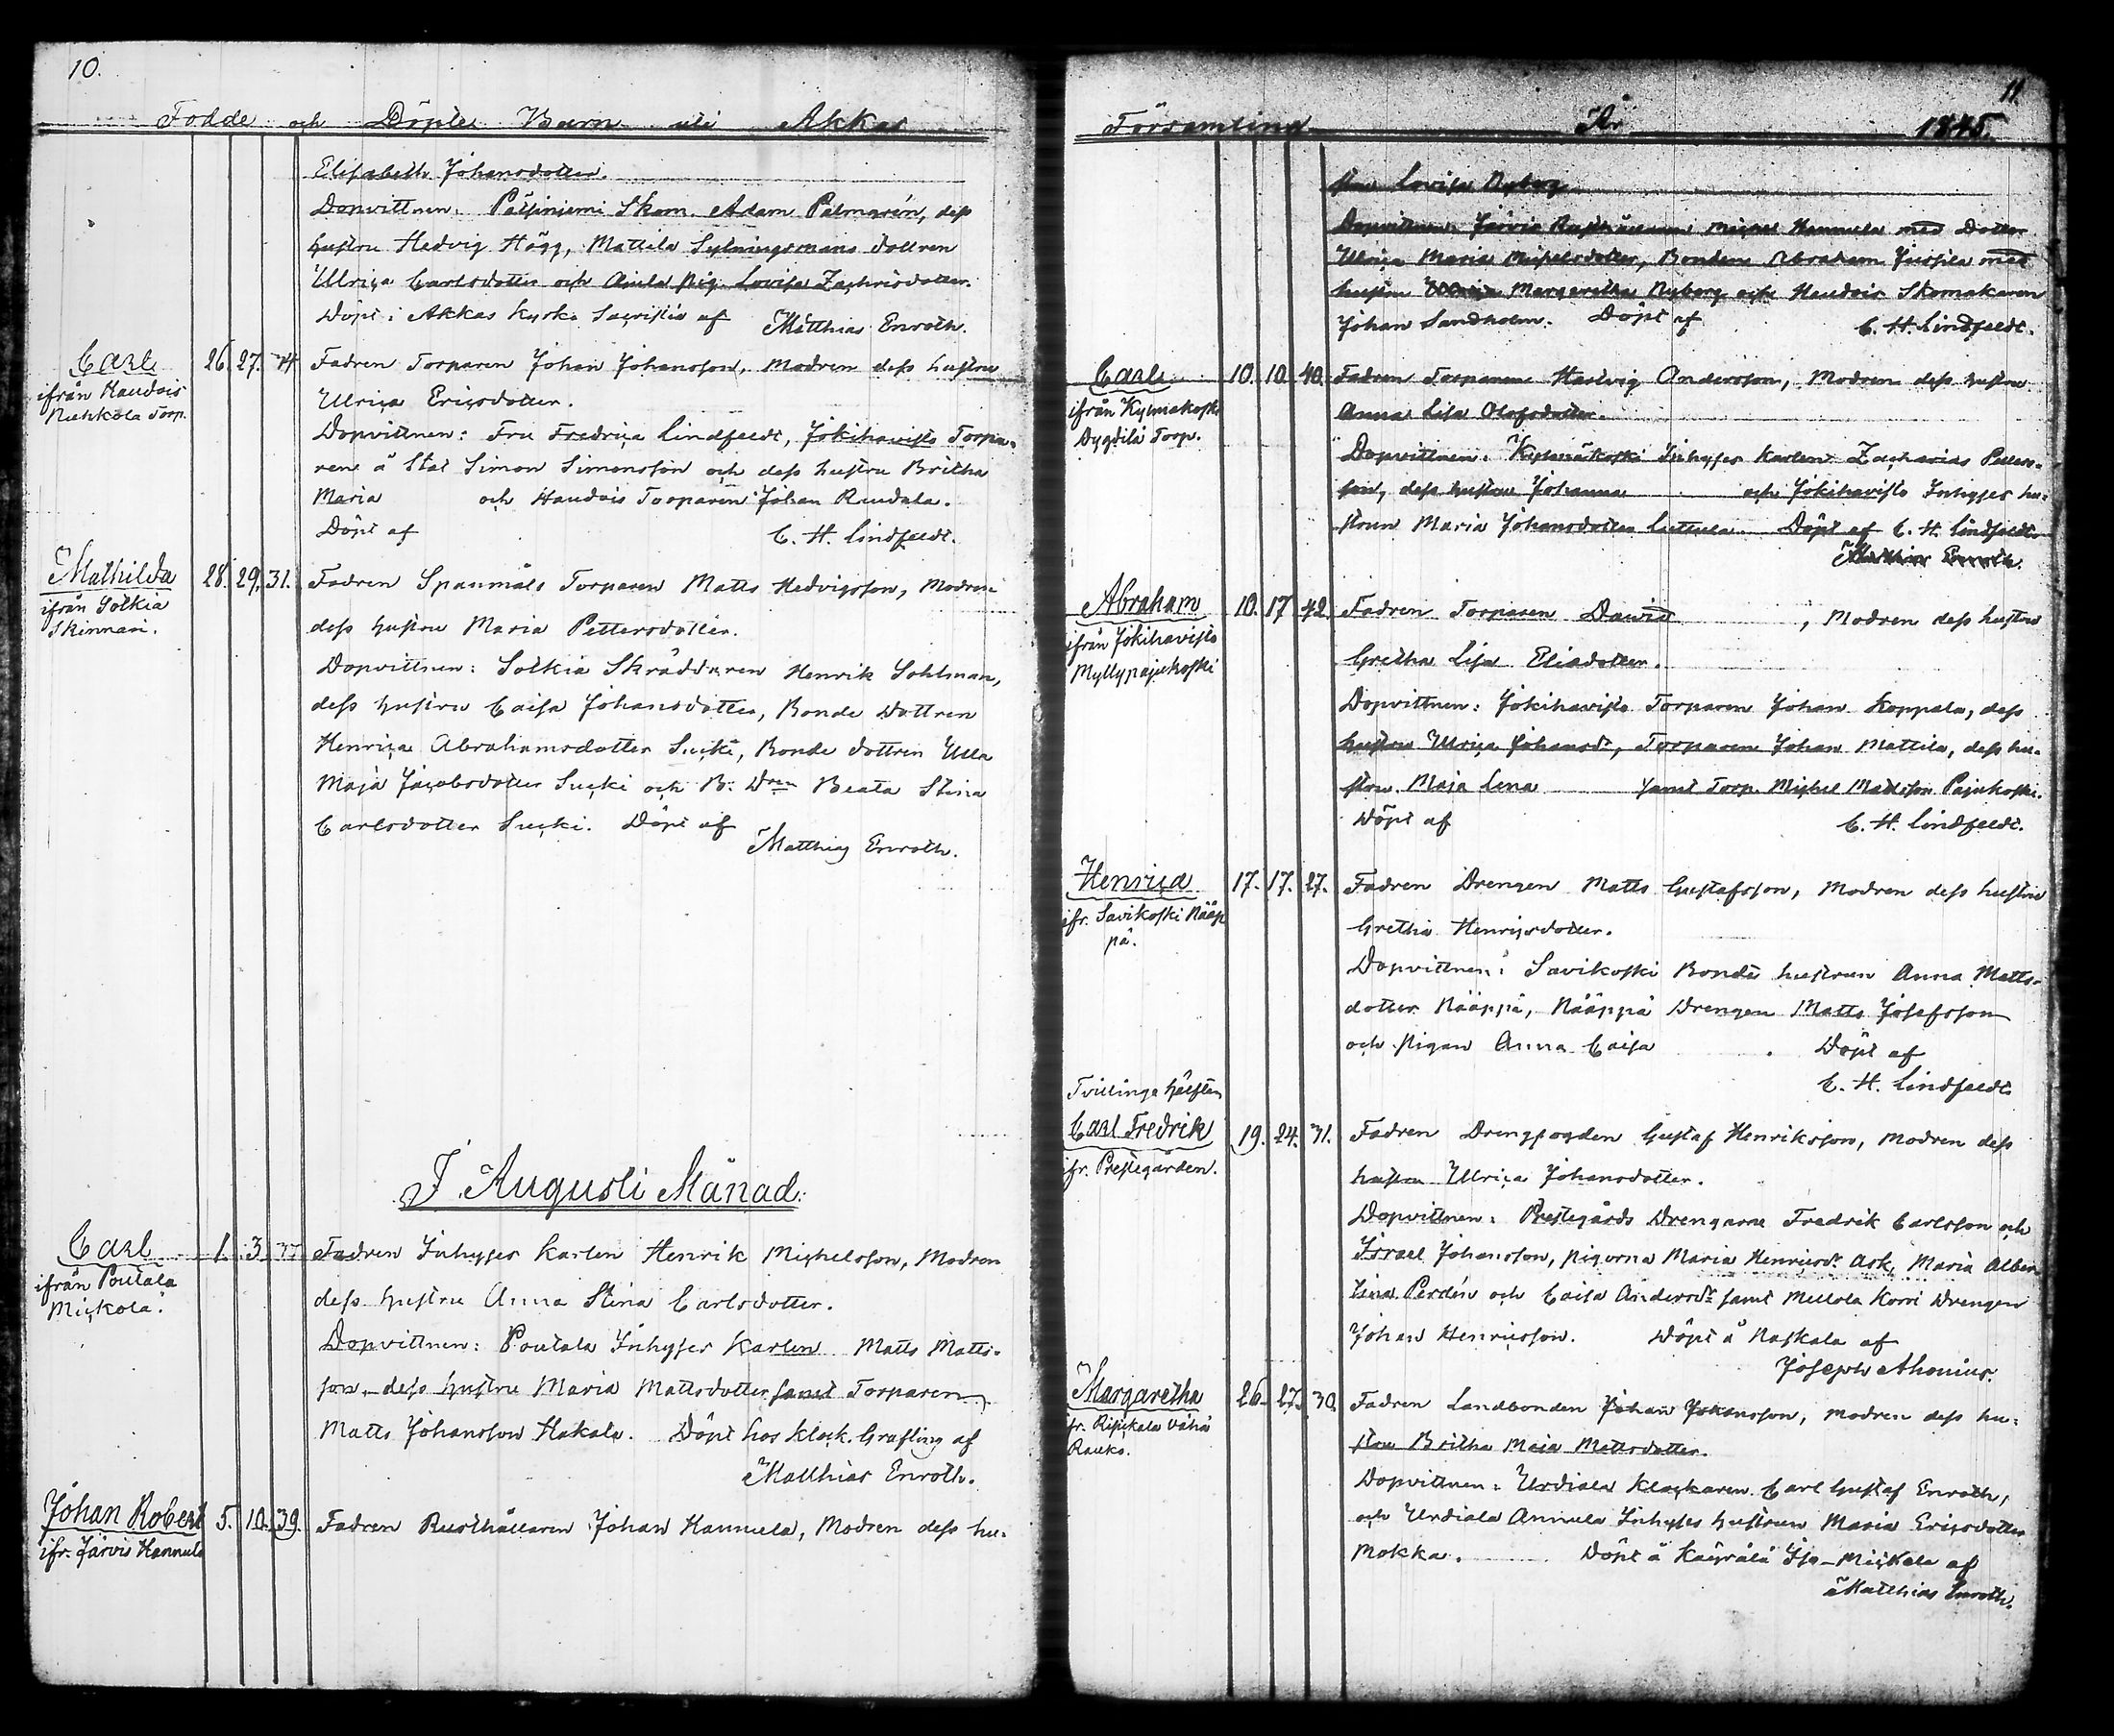 10.
Födde och Döpte Barn uti Akkas
Elisabeth Johansdotter.
Dopvittnen: Pätsiniemi Skom. Adam Palmarén, dess
hustru Hedvig Högg, Mattila Sytningsmans dottren
Ulrica Carlsdotter och Anila pig. Lovisa Zachrisdotter.
Döpt i Akkas Kyrko Sacristia af Matthias Enroth.
Carl 26. 27. 34 Fadren Torparen Johan Johansson, Modren dess hustru
ifrån Haudois
Nuhkola Torp.
Ulrica Ericsdotter.
Dopvittnen: Fru Fredrica Lindfeldt, Jokihavisto Torpa-
ren å Stal Simon Simonsson och dess hustru Britha
Maria och Haudois Torparen Johan Rundala.
Döpt af C. H. Lindfeldt.
Mathilda 28. 29. 31. Fadren Spannmåls Torparen Matts Hedvigsson, Modren
ifrån Sotkia
Skinnari.
dess hustru Maria Pettersdotter.
Dopvittnen: Sotkia Skräddaren Henrik Sohlman,
dess hustru Caisa Johansdotter, Bonde Dottren
Henrica Abrahamsdotter Sucki, Bonde dottren Ulla
Maja Jacobsdotter Sucki och B. Dren Beata Stina
Carlsdotter Sucki. Döpt af
Matthias Enroth.
I Augusti Månad.
Carl 1. 3. 37 Fadren Inhyses Karlen Henrik Michelsson, Modren
ifrån Poutala
Mickola.
dess hustru Anna Stina Carlsdotter.
Dopvittnen: Poutala Inhyses Karlen Matts Matts-
son, dess hustru Maria Mattsdotter samt Torparen
Matts Johansson Hakala. Döpt hos klock. Grafling af
Matthias Enroth.
Johan Robert 5. 10. 39. Fadren Rusthållaren Johan Hannula, Modren dess hu-
ifr. Jarvis Hannula
11.
Församling År 1845.
stru Lovisa Nyberg
Dopvittnen: Jarvis Rusthållaren Michel Hannula med Dotter
Ulrica Maria Michelsdotter, Bonden Abraham Jussila med
hustru Margaretha Nyberg och Haudois Skomakaren
Johan Sandholm. Döpt af C. H. Lindfeldt.
Carl 10. 10. 40. Fadren Torparen Hartvig Andersson, Modren dess hustru
ifrån Kylmakoski
Dygdilä Torp.
Anna Lisa Olofsdotter.
Dopvittnen: Kylmäkoski Inhyses Karlen Zacharias Peters-
son, dess hustru Johanna och Jokihavisto Inhyses hu-
strun Maria Johansdotter Luttula. Döpt af C. H. Lindfeldt.
Matthias Enroth.
Abraham 10. 17 42 Fadren Torparen David , Modren dess hustru
ifrån Jokihavisto
Myllypajukoski
Gretha Lisa Eliadotter.
Dopvittnen: Jokihavisto Torparen Johan Koppala, dess
hustru Ulrica Johansdr, Torparen Johan Mattila, dess hu-
stru Maja Lena samt Torp. Michel Mattsson Pajukoski.
Döpt af C. H. Lindfeldt.
Henrica 17. 17. 27. Fadren Drengen Matts Gustafsson, Modren dess hustru
ifr. Savikoski Nääp
pä.
Gretha Henricsdotter.
Dopvittnen: Savikoski Bonde hustrun Anna Matts-
dotter Nääppä, Nääppä Drengen Matts Josefsson
och pigan Anna Caisa . Döpt af
C. H. Lindfeldt.
Tvillinge hälften
Carl Fredrik 19. 24. 31. Fadren Drengfogden Gustaf Henriksson, Modren dess
ifr. Prestegården.
hustru Ulrica Johansdotter.
Dopvittnen: Prestegårds Drengarne Fredrik Carlsson och
Israel Johansson, pigorna Maria Henricsdr Ask, Maria Alber
tina Perdén och Caisa Andersdr samt Mellola Korri Drengen
Johan Henricsson. Döpt å Naskala af
Joseph Ahonius.
Margaretha 26. 27. 30. Fadren Landbonden Johan Johansson, Modren dess hu-
fr. Ripickala Vähä
Rauko.
stru Britha Maja Mattsdotter.
Dopvittnen: Urdiala Klockaren Carl Gustaf Enroth,
och Urdiala Annula Inhyses hustrun Maria Ericsdotter
Mokka. Döpt å Kägrälä Iso-Mickola af
Matthias Enroth.